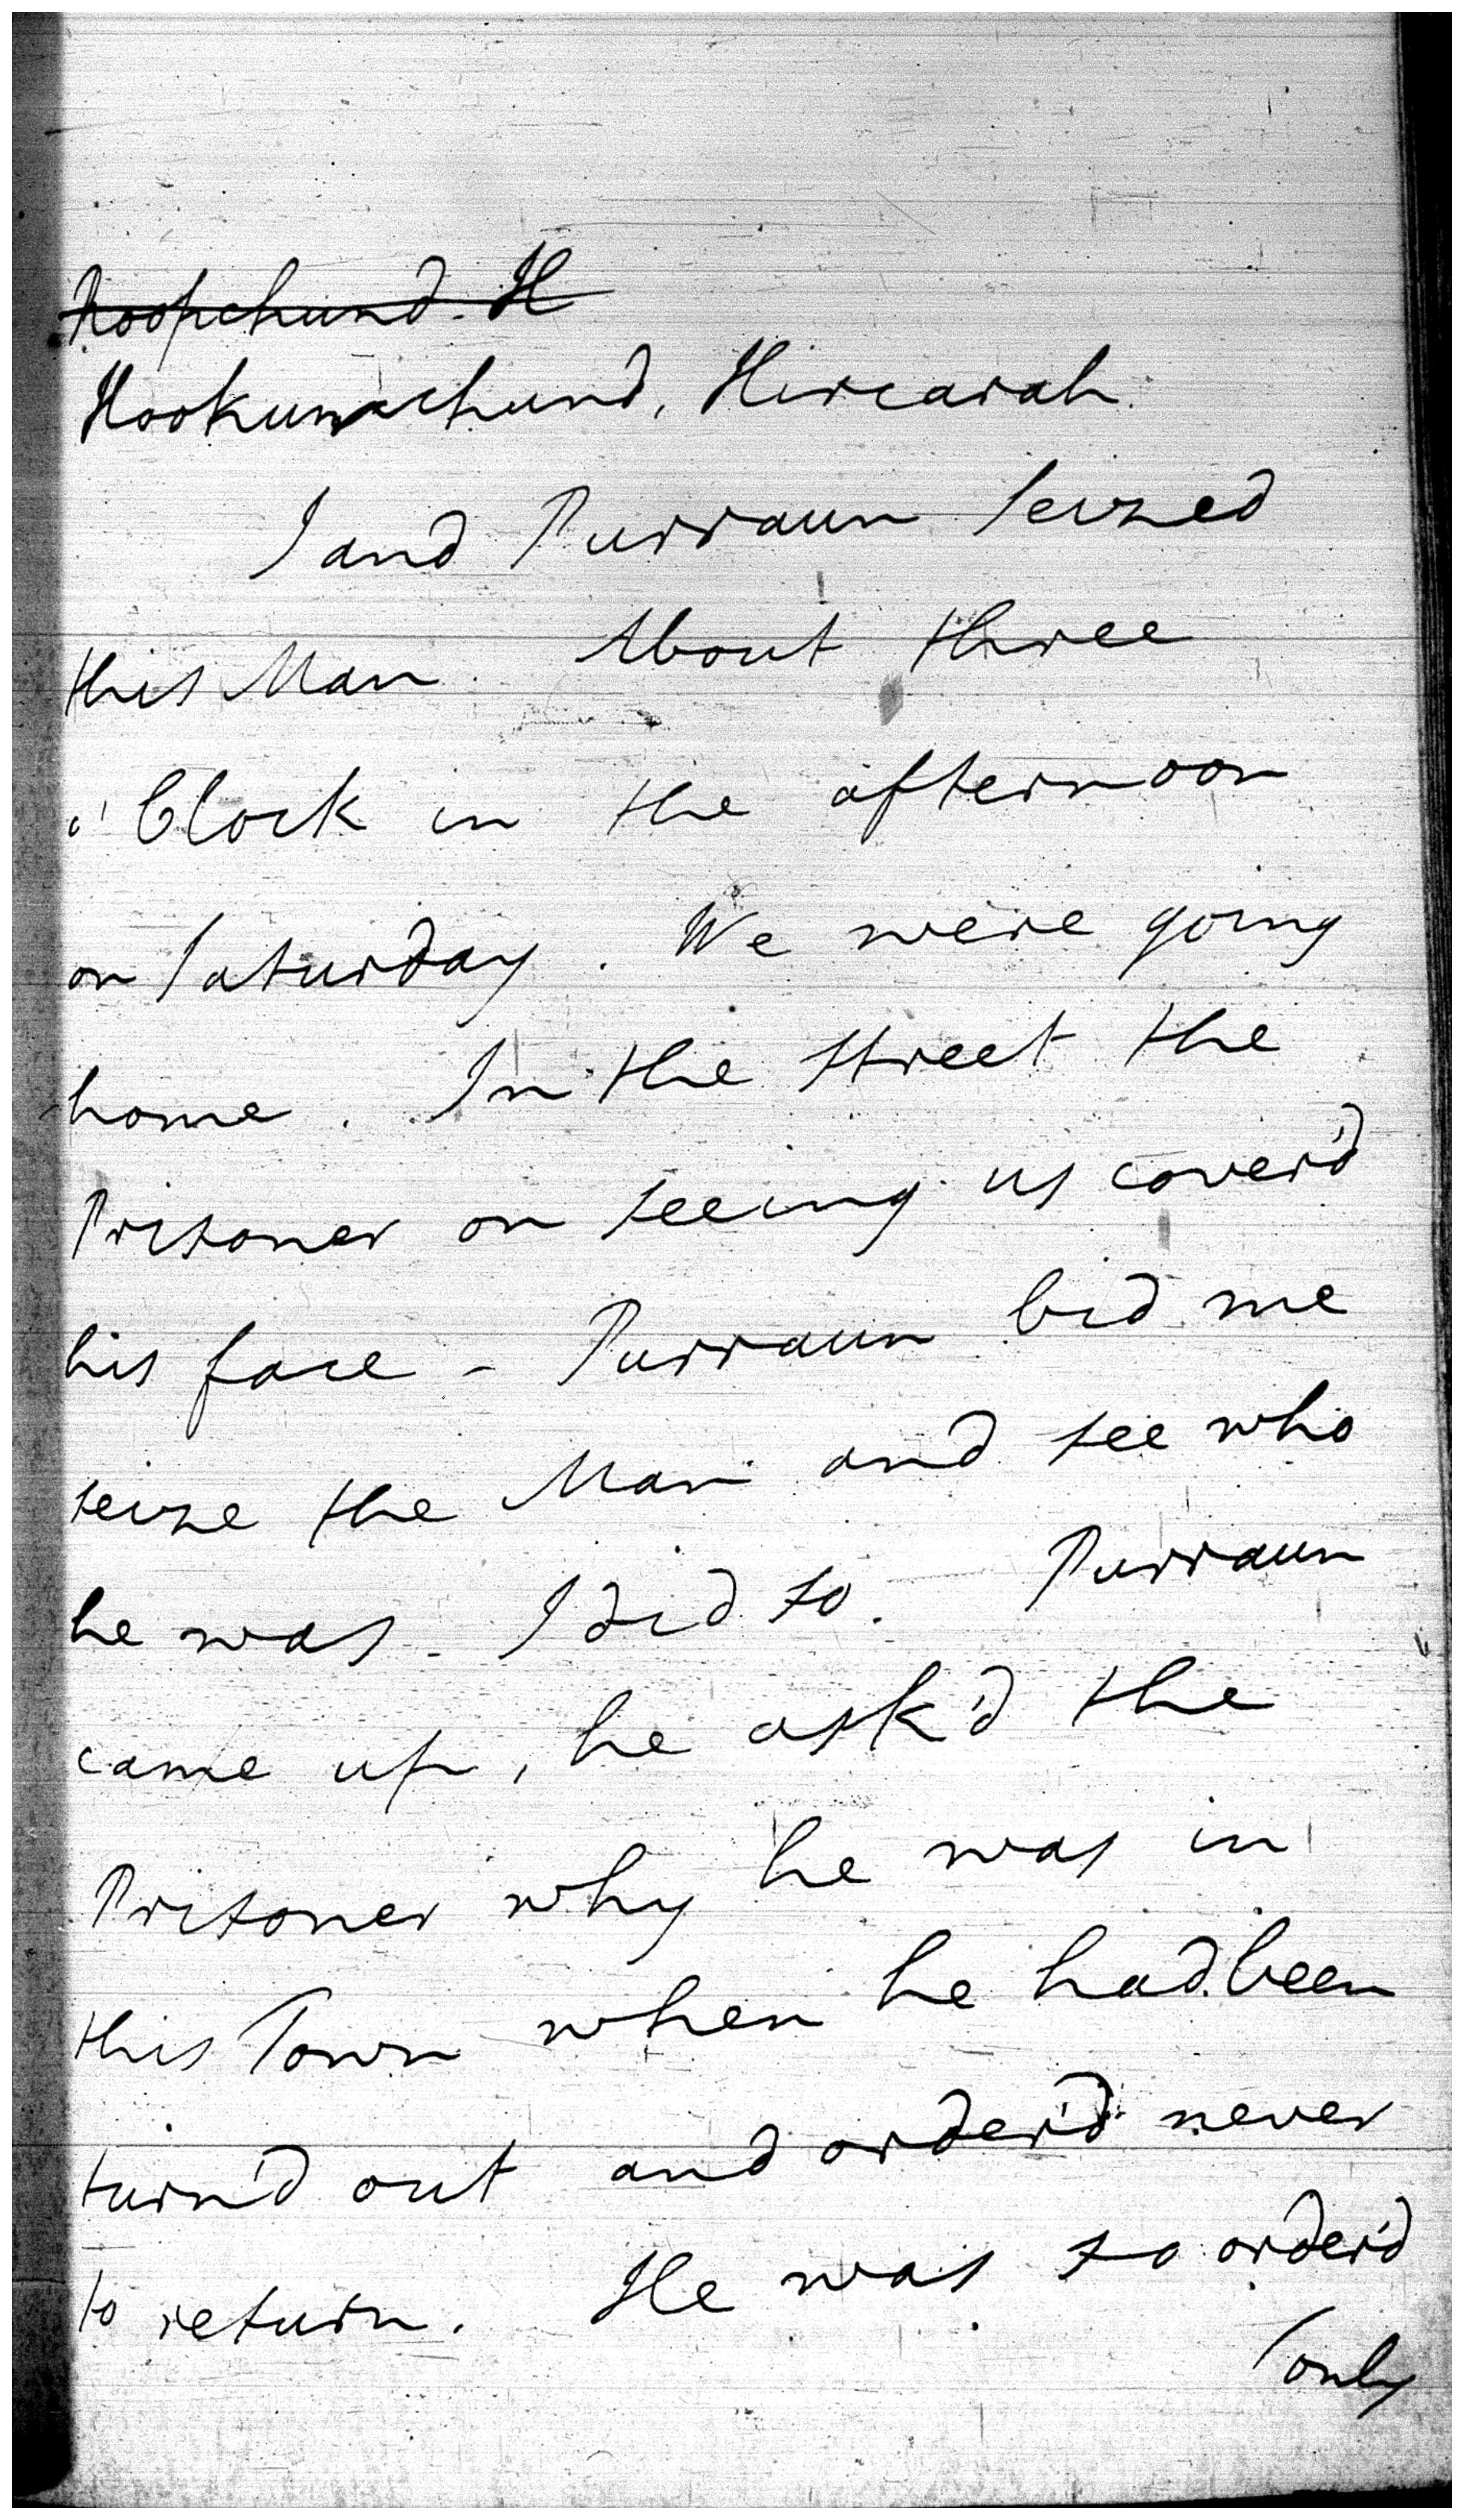 Roopchund. H
Hookumchund, Hircarah.
I and Purraun seized
this Man. About three
o'Clock in the afternoon
on Saturday. We were going
home. In the street the
Prisoner on seeing us cover'd
his face - Purraun bid me
seize the Man and see who
he was - I did so. Purraun
came up, he ask'd the
Prisoner why he was in
this Town when he had been
turn'd out and order'd never
to return. He was so order'd
only